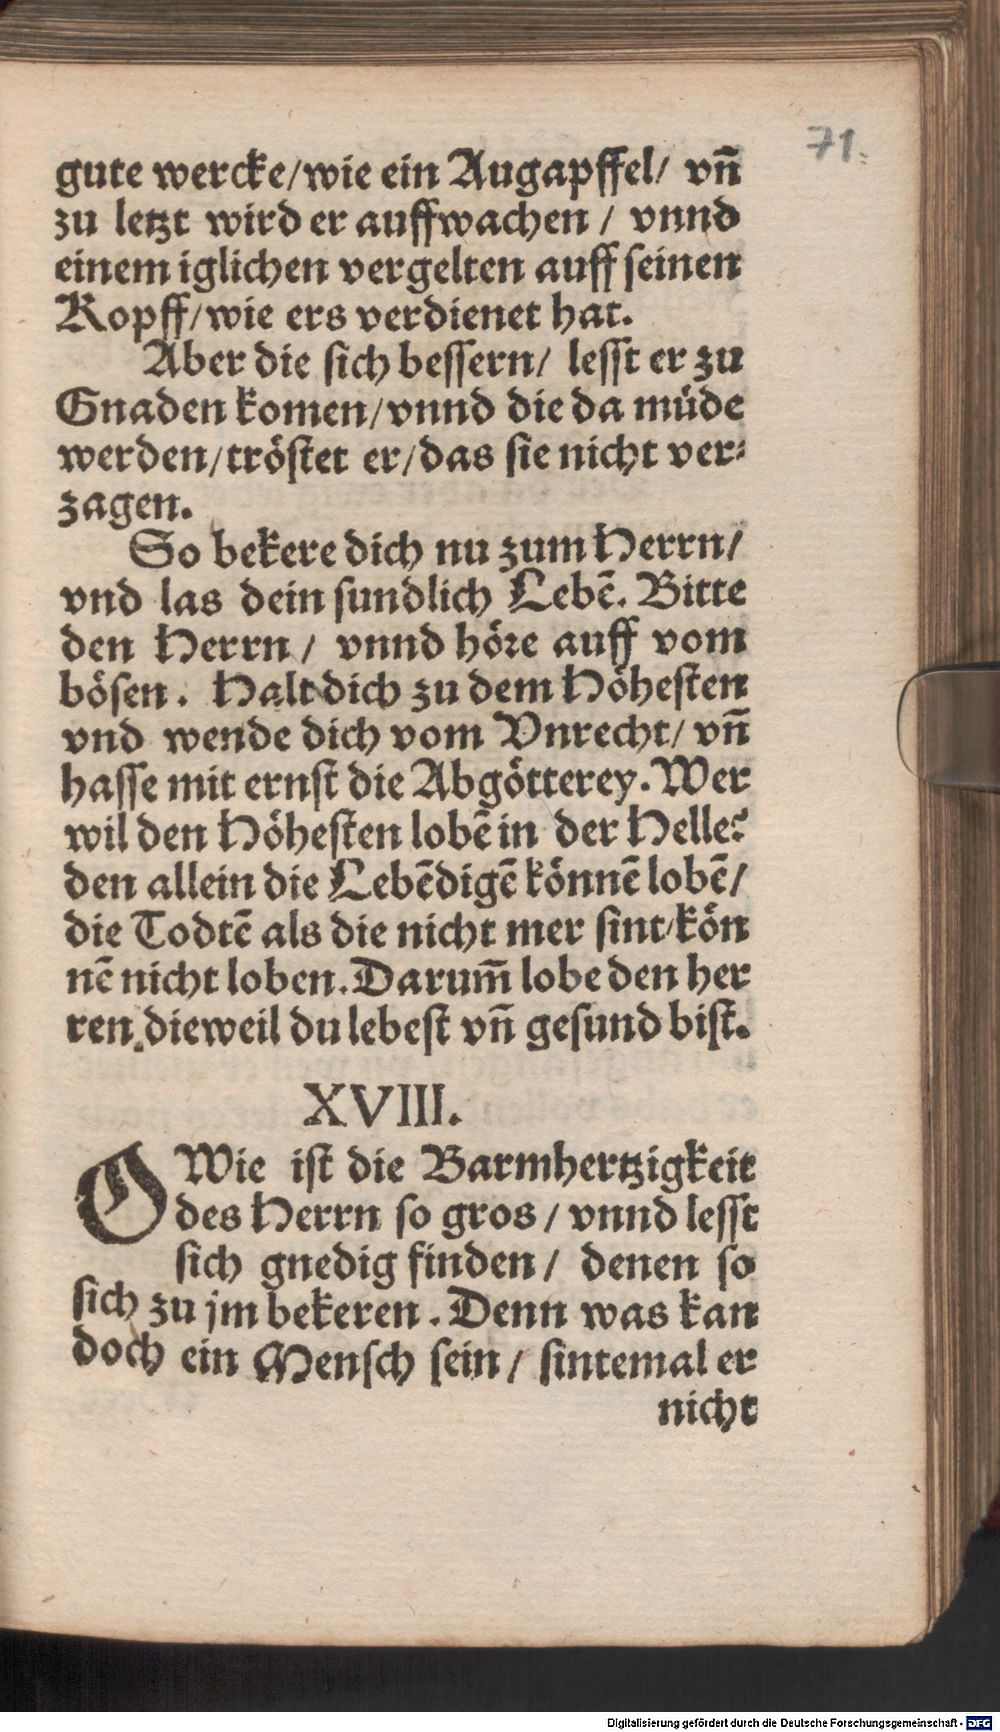 71.
gute wercke/wie ein Augapffel/ vn̄
zu letzt wird er auffwachen / vnnd
einem iglichen vergelten auff seinen
Kopff/wie ers verdienet hat.
Aber die sich bessern/ lesst er zu
Gnaden komen/vnnd die da müde
werden/tröstet er/das sie nicht ver-
zagen.
So bekere dich nu zum Herrn/
vnd las dein sundlich Lebē. Bitte
den Herrn / vnnd höre auff vom
bösen. Halt dich zu dem Höhesten
vnd wende dich vom Vnrecht/ vn̄
hasse mit ernst die Abgötterey. Wer
wil den Höhesten lobē in der Helle?
den allein die Lebēdigē könnē lobē/
die Todtē als die nicht mer sint/kön
nē nicht loben. Darum̄ lobe den her
ren, dieweil du lebest vn̄ gesund bist.
XVIII.
O Wie ist die Barmhertzigkeit
des Herrn so gros / vnnd lesst
sich gnedig finden / denen so
sich zu jm bekeren. Denn was kan
doch ein Mensch sein / sintemal er
nicht
Digitalisierung gefördert durch die Deutsche Forschungsgemeinschaft - DFG